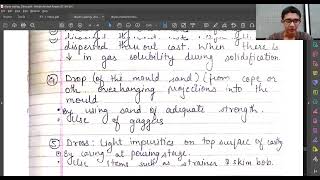 dispersed thru out cast. When there is
↓ in gas solubility during solidification.
④ Drop (of the mould sand) (from cope or
oth. overhanging projections into the
mould
By using sand of adequate strength.
Use of gaggers
⑤ Dross: Light impurities on top surface of casty
By caring at pouring stage.
Use items such as strainer & skim bob.